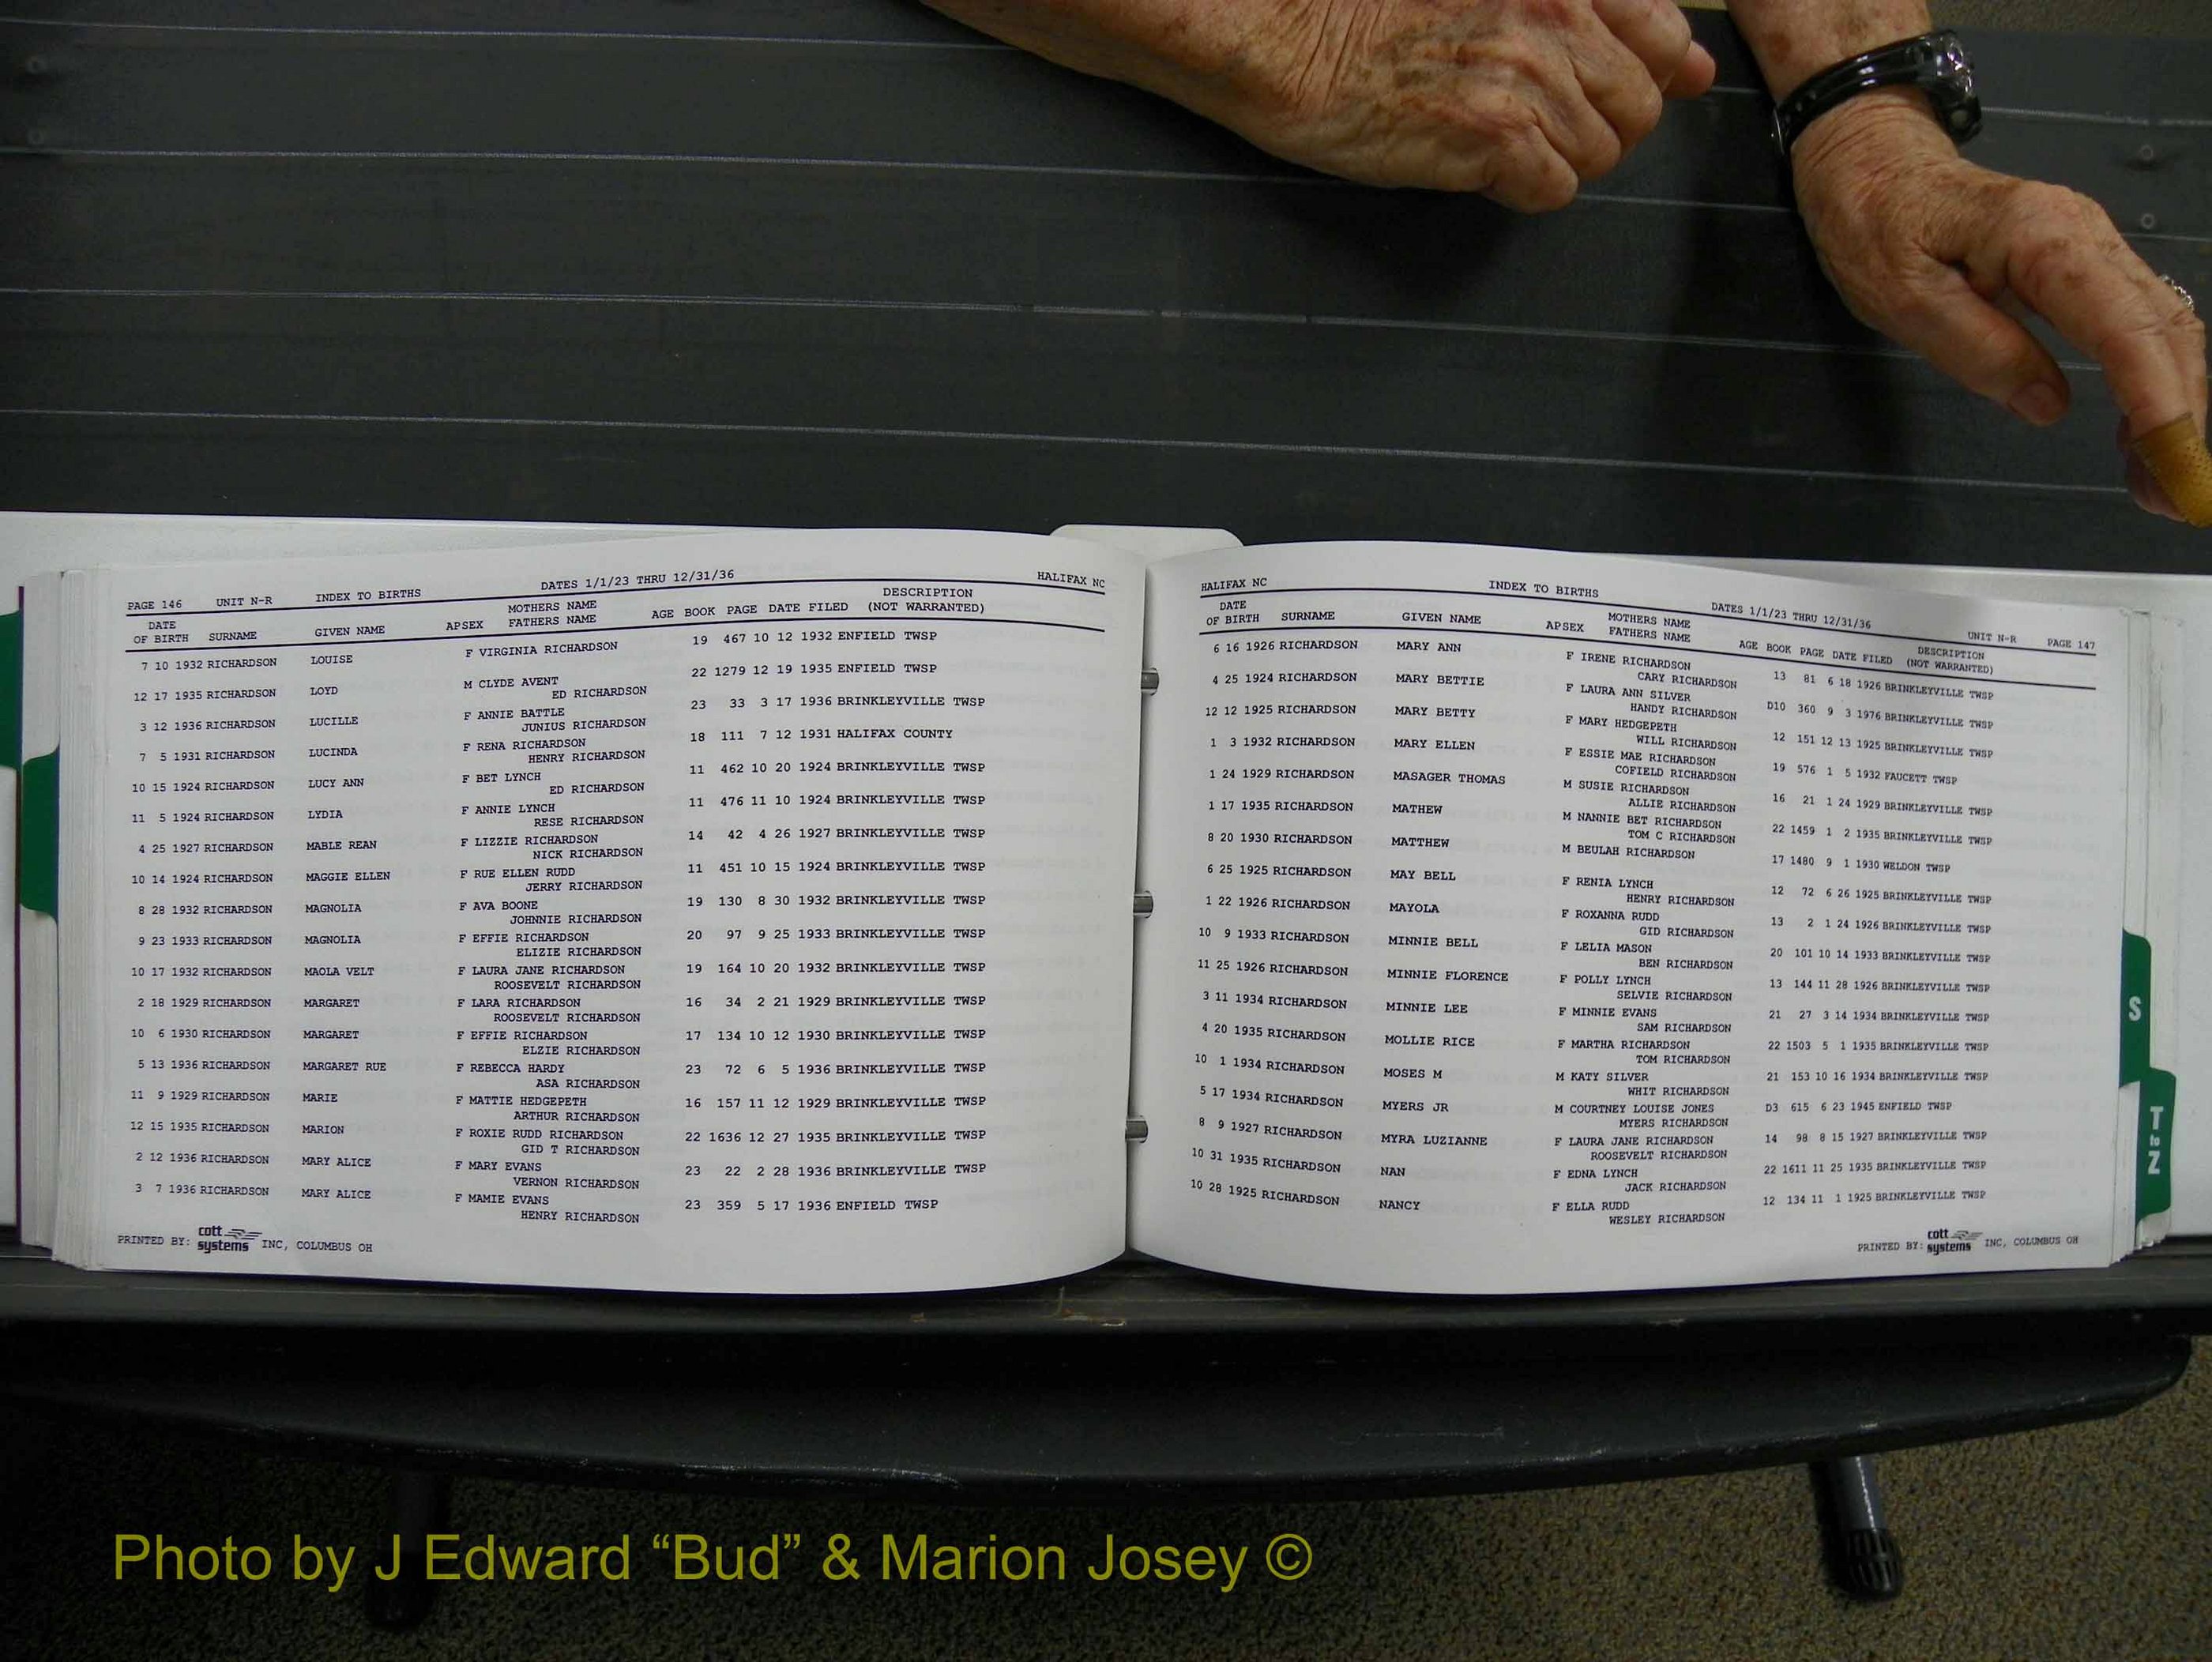 PAGE 146 UNIT N-R INDEX TO BIRTHS DATES 1/1/23 THRU 12/31/36 HALIFAX NC
DATE MOTHERS NAME DESCRIPTION
OF BIRTH SURNAME GIVEN NAME APSEX FATHERS NAME AGE BOOK PAGE DATE FILED (NOT WARRANTED)
7 10 1932 RICHARDSON LOUISE F VIRGINIA RICHARDSON 19 467 10 12 1932 ENFIELD TWSP
12 17 1935 RICHARDSON LOYD M CLYDE AVENT 22 1279 12 19 1935 ENFIELD TWSP
ED RICHARDSON
3 12 1936 RICHARDSON LUCILLE F ANNIE BATTLE 23 33 3 17 1936 BRINKLEYVILLE TWSP
JUNIUS RICHARDSON
7 5 1931 RICHARDSON LUCINDA F RENA RICHARDSON 18 111 7 12 1931 HALIFAX COUNTY
HENRY RICHARDSON
10 15 1924 RICHARDSON LUCY ANN F BET LYNCH 11 462 10 20 1924 BRINKLEYVILLE TWSP
ED RICHARDSON
11 5 1924 RICHARDSON LYDIA F ANNIE LYNCH 11 476 11 10 1924 BRINKLEYVILLE TWSP
RESE RICHARDSON
4 25 1927 RICHARDSON MABLE REAN F LIZZIE RICHARDSON 14 42 4 26 1927 BRINKLEYVILLE TWSP
NICK RICHARDSON
10 14 1924 RICHARDSON MAGGIE ELLEN F RUE ELLEN RUDD 11 451 10 15 1924 BRINKLEYVILLE TWSP
JERRY RICHARDSON
8 28 1932 RICHARDSON MAGNOLIA F AVA BOONE 19 130 8 30 1932 BRINKLEYVILLE TWSP
JOHNNIE RICHARDSON
9 23 1933 RICHARDSON MAGNOLIA F EFFIE RICHARDSON 20 97 9 25 1933 BRINKLEYVILLE TWSP
ELIZIE RICHARDSON
10 17 1932 RICHARDSON MAOLA VELT F LAURA JANE RICHARDSON 19 164 10 20 1932 BRINKLEYVILLE TWSP
ROOSEVELT RICHARDSON
2 18 1929 RICHARDSON MARGARET F LARA RICHARDSON 16 34 2 21 1929 BRINKLEYVILLE TWSP
ROOSEVELT RICHARDSON
10 6 1930 RICHARDSON MARGARET F EFFIE RICHARDSON 17 134 10 12 1930 BRINKLEYVILLE TWSP
ELZIE RICHARDSON
5 13 1936 RICHARDSON MARGARET RUE F REBECCA HARDY 23 72 6 5 1936 BRINKLEYVILLE TWSP
ASA RICHARDSON
11 9 1929 RICHARDSON MARIE F MATTIE HEDGEPETH 16 157 11 12 1929 BRINKLEYVILLE TWSP
ARTHUR RICHARDSON
12 15 1935 RICHARDSON MARION F ROXIE RUDD RICHARDSON 22 1636 12 27 1935 BRINKLEYVILLE TWSP
GID T RICHARDSON
2 12 1936 RICHARDSON MARY ALICE F MARY EVANS 23 22 2 28 1936 BRINKLEYVILLE TWSP
VERNON RICHARDSON
3 7 1936 RICHARDSON MARY ALICE F MAMIE EVANS 23 359 5 17 1936 ENFIELD TWSP
HENRY RICHARDSON
PRINTED BY: cott systems INC, COLUMBUS OH
HALIFAX NC INDEX TO BIRTHS DATES 1/1/23 THRU 12/31/36 UNIT N-R PAGE 147
DATE MOTHERS NAME DESCRIPTION
OF BIRTH SURNAME GIVEN NAME APSEX FATHERS NAME AGE BOOK PAGE DATE FILED (NOT WARRANTED)
6 16 1926 RICHARDSON MARY ANN F IRENE RICHARDSON 13 81 6 18 1926 BRINKLEYVILLE TWSP
CARY RICHARDSON
4 25 1924 RICHARDSON MARY BETTIE F LAURA ANN SILVER D10 360 9 3 1976 BRINKLEYVILLE TWSP
HANDY RICHARDSON
12 12 1925 RICHARDSON MARY BETTY F MARY HEDGEPETH 12 151 12 13 1925 BRINKLEYVILLE TWSP
WILL RICHARDSON
1 3 1932 RICHARDSON MARY ELLEN F ESSIE MAE RICHARDSON 19 576 1 5 1932 FAUCETT TWSP
COFIELD RICHARDSON
1 24 1929 RICHARDSON MASAGER THOMAS M SUSIE RICHARDSON 16 21 1 24 1929 BRINKLEYVILLE TWSP
ALLIE RICHARDSON
1 17 1935 RICHARDSON MATHEW M NANNIE BET RICHARDSON 22 1459 1 2 1935 BRINKLEYVILLE TWSP
TOM C RICHARDSON
8 20 1930 RICHARDSON MATTHEW M BEULAH RICHARDSON 17 1480 9 1 1930 WELDON TWSP
6 25 1925 RICHARDSON MAY BELL F RENIA LYNCH 12 72 6 26 1925 BRINKLEYVILLE TWSP
HENRY RICHARDSON
1 22 1926 RICHARDSON MAYOLA F ROXANNA RUDD 13 2 1 24 1926 BRINKLEYVILLE TWSP
GID RICHARDSON
10 9 1933 RICHARDSON MINNIE BELL F LELIA MASON 20 101 10 14 1933 BRINKLEYVILLE TWSP
BEN RICHARDSON
11 25 1926 RICHARDSON MINNIE FLORENCE F POLLY LYNCH 13 144 11 28 1926 BRINKLEYVILLE TWSP
SELVIE RICHARDSON
3 11 1934 RICHARDSON MINNIE LEE F MINNIE EVANS 21 27 3 14 1934 BRINKLEYVILLE TWSP
SAM RICHARDSON
4 20 1935 RICHARDSON MOLLIE RICE F MARTHA RICHARDSON 22 1503 5 1 1935 BRINKLEYVILLE TWSP
TOM RICHARDSON
10 1 1934 RICHARDSON MOSES M M KATY SILVER 21 153 10 16 1934 BRINKLEYVILLE TWSP
WHIT RICHARDSON
5 17 1934 RICHARDSON MYERS JR M COURTNEY LOUISE JONES D3 615 6 23 1945 ENFIELD TWSP
MYERS RICHARDSON
8 9 1927 RICHARDSON MYRA LUZIANNE F LAURA JANE RICHARDSON 14 98 8 15 1927 BRINKLEYVILLE TWSP
ROOSEVELT RICHARDSON
10 31 1935 RICHARDSON NAN F EDNA LYNCH 22 1611 11 25 1935 BRINKLEYVILLE TWSP
JACK RICHARDSON
10 28 1925 RICHARDSON NANCY F ELLA RUDD 12 134 11 1 1925 BRINKLEYVILLE TWSP
WESLEY RICHARDSON
PRINTED BY: cott systems INC, COLUMBUS OH
S
T to Z
Photo by J Edward “Bud” & Marion Josey ©